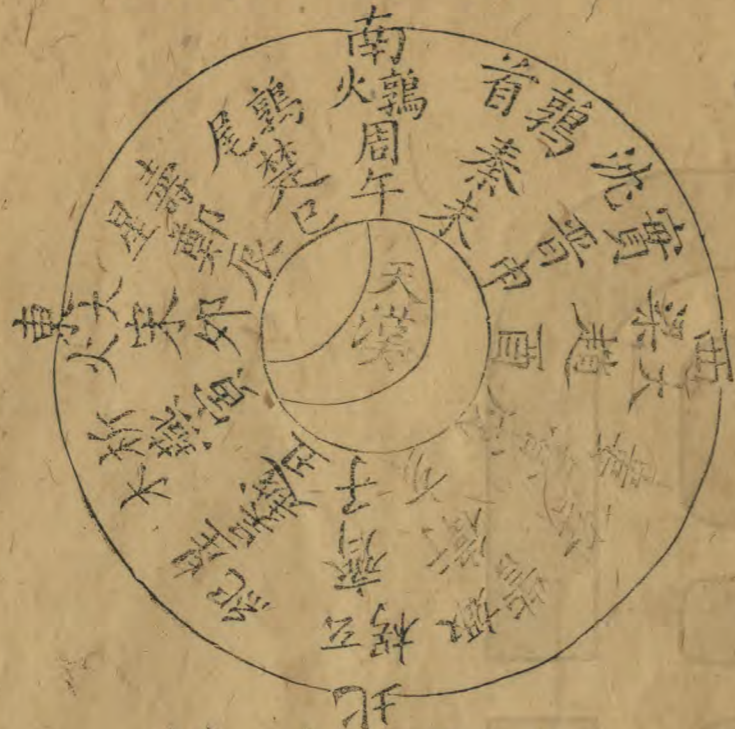 南
鶉火
周
午
鶉首
秦
未
實沈
晉
申
西
大梁
趙
酉
降婁
魯
戌
娵訾
衛
亥
北
玄枵
齊
子
星紀
吳越
丑
析木
燕
寅
東
大火
宋
卯
壽星
鄭
辰
鶉尾
楚
巳
天漢